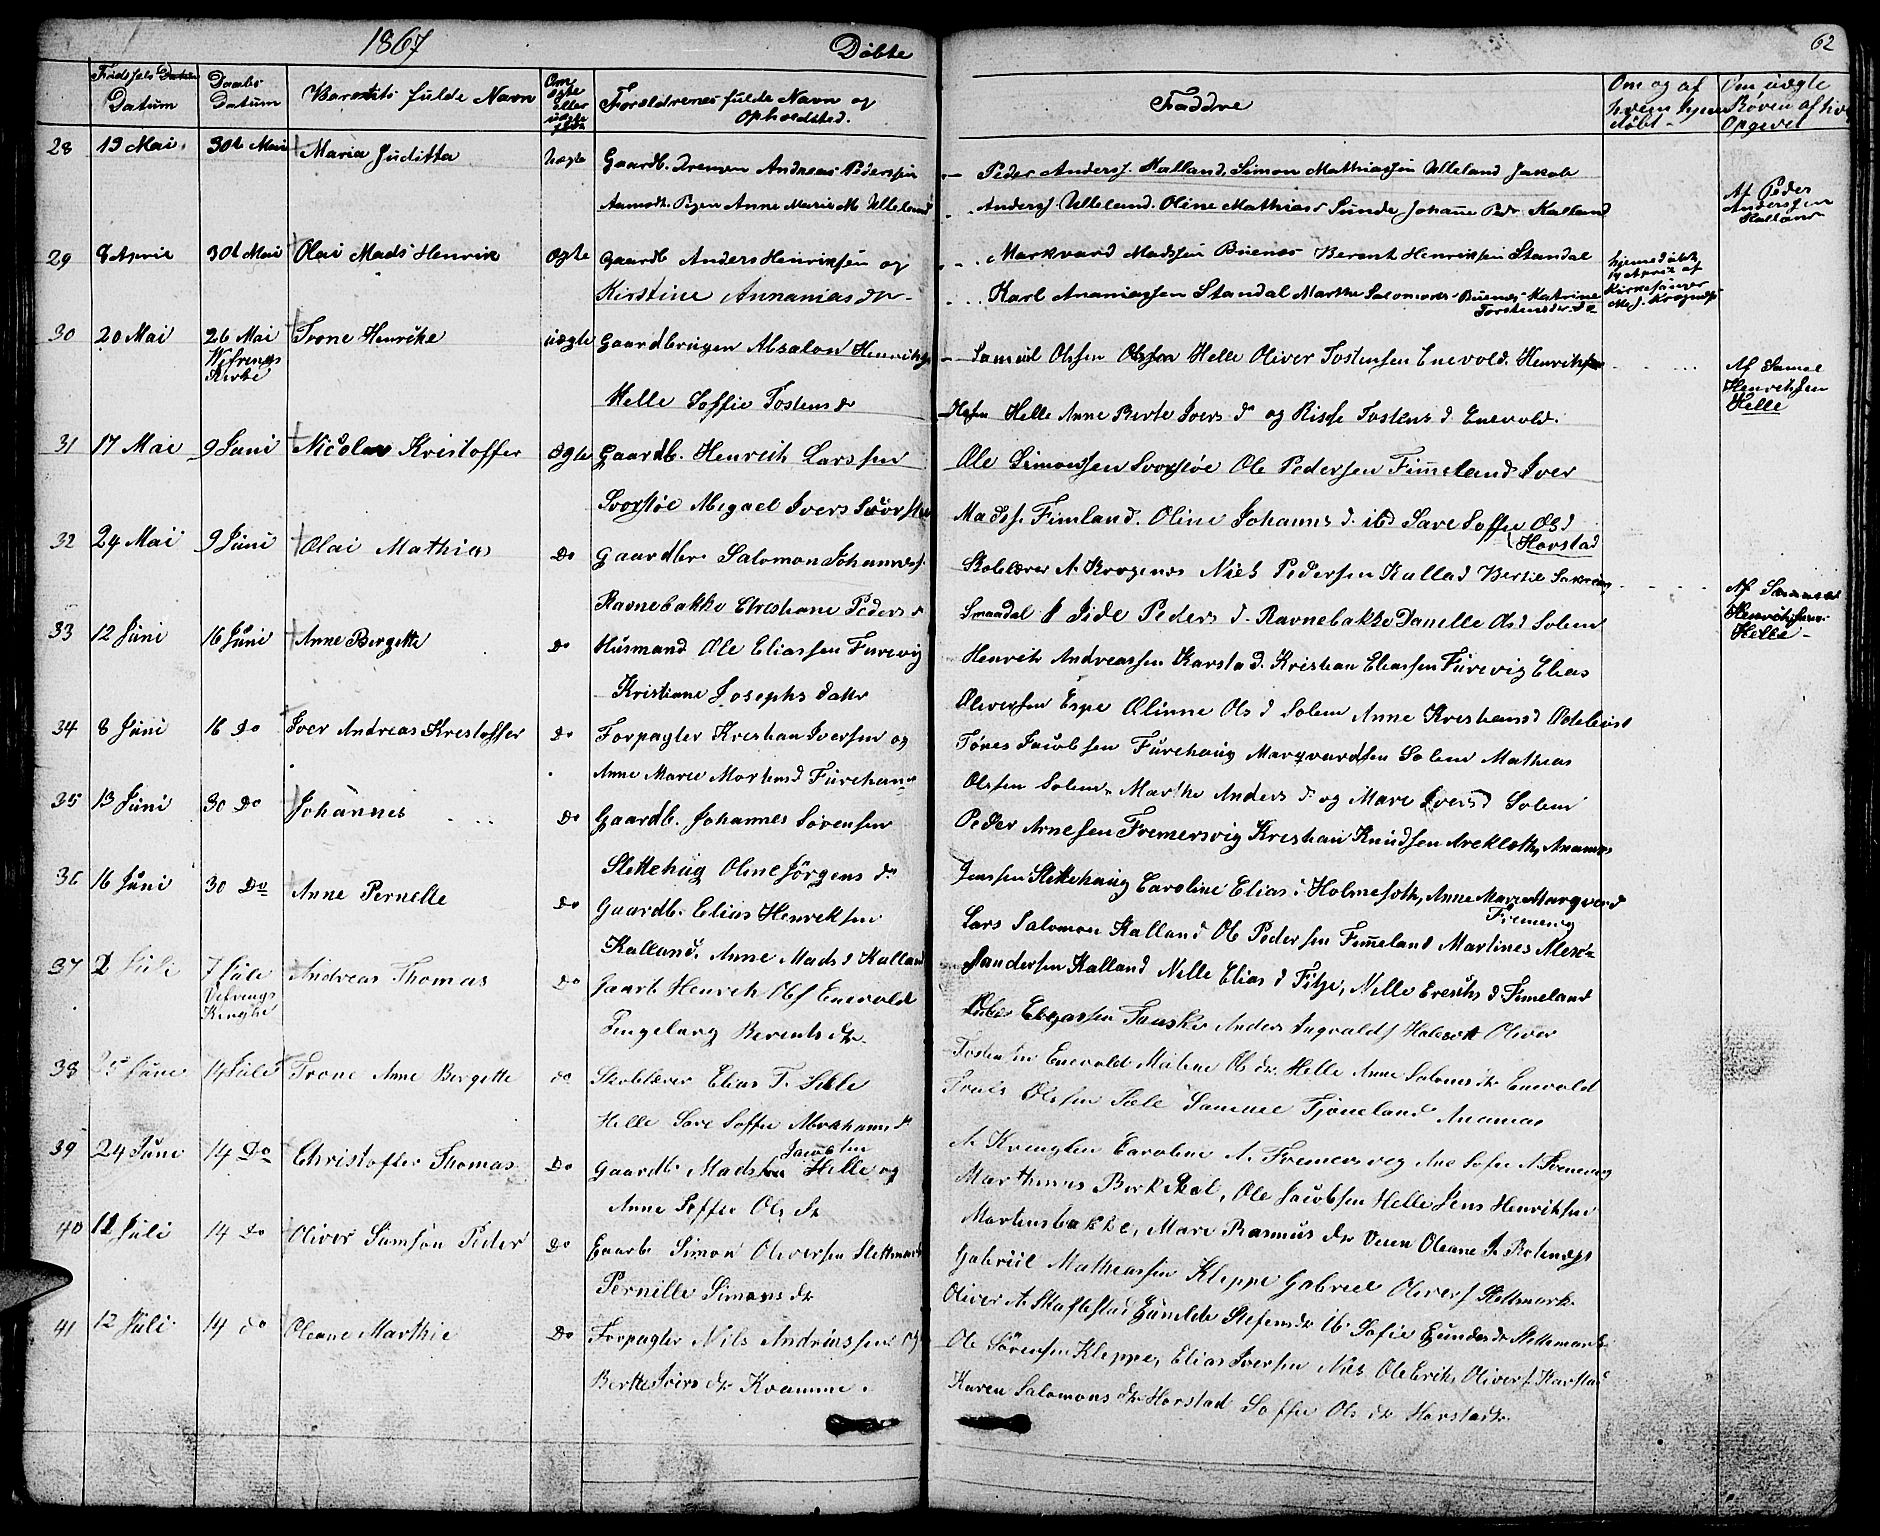 1867
Døbte
62
Fødsels Datum
Datum
Daabs
Datum
Barnets fulde Navn
Om
ægte
eller
uægte
født
Forældrenes fulde Navn og
Opholdsted.
Faddre
Om og af
hvem hjem
døbt
Om uægte
Opgivet
28 19 Mai 30te Mai Maria Juditta Uægte
Gaardb. Drengen Andreas Pedersen
Aamodt. Pigen Anne Marie M. Ulleland
Peder Anders. Kalland, Simon Mathiassen Ulleland Jakob
Anders. Ulleland. Oline Mathias Sunde Johanne Peder Kalland
Af Peder
Anderssen
Kalland
29 8 April 30te Mai Olai Mads Henrik Ægte
Gaardb Anders Henriksen og
Kirstine Annanias Dr
Markvard Madssen Buenes Berent Henriksen Standal
Karl Ananiassen Standal Marthe Salomons Buenes Katrine
Torstensdr. do
hjemedøbt
af
Kirkesanger
30 20 Mai 26 Mai Trone Henrike uægte
Vefrengs
Kirke
Gaardbrugen Absalon Henriks
Helle Soffie Tostens d
Samuel Olssen Helle Oliver Tostensen Enevold. Henriksen
Helle Anne Berte Ivers d og Risse Tostens d Enevold.
Af Samel
Henriksen
Helle
31 17 Mai 9 Juni Nicolai Kristoffer Ægte
Gaardb. Henrich Larssen
Svorstøe Abigael Ivers Svorstøe
Ole Simonssen Svorstøe Ole Pedersen Fimeland Iver
Madss. Fimland. Oline Johanns d. ibd Sare Soffie Ols d
Horstad
32 24 Mai 9 Juni Olai Mathias Do
Gaardbr Salomon Johanness.
Ravnebakke Christiane Peders d
Skolelærer A. Krogenes Niels Pedersen Kallad Bertie
Smaadal Peders d. Ravnebakke Danelle Ols d Solem
Af Samuel
Henrichsen
Helle
33 12 Juni 16 Juni Anne Bergette Do
Husmand Ole Eliassen Furevig
Kristiane Josephs datter
Henrik Andreassen Karstad. Kristian Eliassen Furevig Elias
Oliversen Espe Olinne Ols d Solem Anne Kristians d
34 8 Juni 16 Do Iver Andreas Kristoffer Do
Forpagter Kristian Iversen og
Anne Marie Mortens d Furehaug
Tønes Jacobsen Furehaug Marqvardsen Solem Mathias
Olssen Solem, Marthe Anders d og Mare Ivers d Solem
35 13 Juni 30 Do Johannes Do
Gaardb. Johannes Sørensen
Slettehug Oline Jørgens d
Peder Arnesen Fremersvig Kristian Knudsen Areklæth, Ananias
Jenssen Slettehaug Caroline Elias d Holmesoth, Anne Marie Marqverd
Fremersvig
36 16 Juni 30 Do Anne Pernelle Do
Gaardb. Elias Henriksen
Kalland. Anne Mads d Kalland
Lars Salomon Kalland Ole Pedersen Fimeland Martines Alex-
sandersen Kalland Nille Elias d Fitje, Nille Eriks d Fimeland
37 2 Juli 7 Juli Andreas Thomas Do
Vefrengs
Kirche
Gaarb Henrich Ols Enevold
Ingeborg Berents dr.
Eliassen Anders Ingvalds Oliver
Tostensen Enevold Maline Ols dr. Helle Anne Salomos dr Enevold
38 25 Juni 14 Juli Trone Anne Bergette do
Skolelærer Elias T. Sele
Helle Sare Soffie Abrahams d
Olssen Sæle Samuel Tjøneland Ananias
A. Caroline A. Fremersveg Ane Sofie A. Fremevig
39 24 Juni 14 Do Christoffer Thomas Do
Jacobsen
Gaardb. Mads Helle og
Anne Soffie Ols Dr
Marthinus Birkedal, Ole Jacobsen Helle Jens Henriksen
Martensbakke, Mare Rasmus dr Oleane
40 11 Juli 14 Do Oliver Samson Peder Do
Gaarb Simon Oliversen Slettmark
Pernille Simons dr
Gabriel Mathiassen Kleppe Gabriel Olivers. Slettmark
Oliver A. Skaftestad Gunilde Stefens dr ib. Sofie Gunders dr Slettemark
41 12 Juli 14 do Oleane Marthie Do
Forpagter Nils Andriassen og
Berthe Ivers dr Kvamme.
Ole Sørensen Kleppe, Elias Iversen Ole Erik. Olivers. Karstad
Karen Salomons dr Horstad Soffie Ols dr Horstad